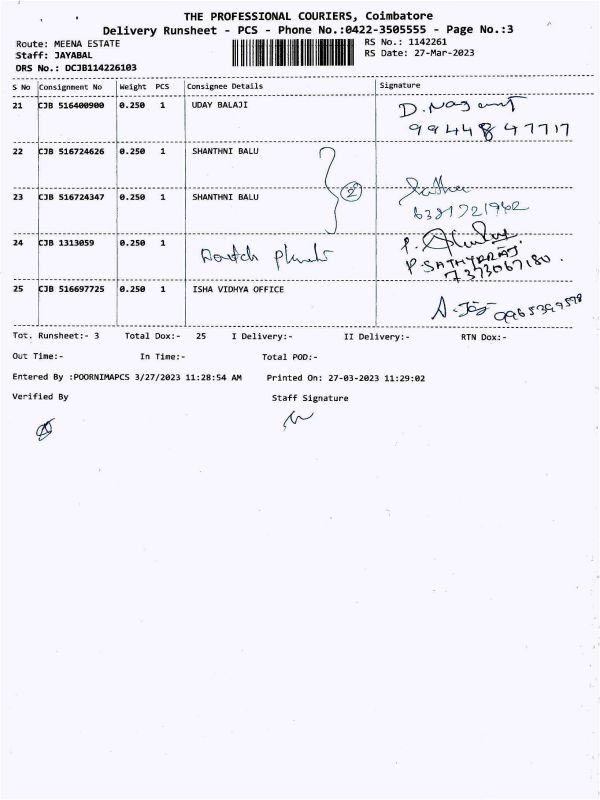 THE PROFESSIONAL COURIERS, Coimbatore
Delivery Runsheet - PCS - Phone No.:0422-3505555 - Page No.:3
Route: MEENA ESTATE
RS No.: 1142261
Staff: JAYABAL
RS Date: 27-Mar-2023
DRS No.: DCJB114226103
S No Consignment No Weight PCS Consignee Details Signature
21 CJB 516400900 0.250 1 UDAY BALAJI D. Nagamt
9944847717
22 CJB 516724626 0.250 1 SHANTHNI BALU
2
23 CJB 516724347 0.250 1 SHANTHNI BALU
6381721962
24 CJB 1313059 0.250 1
P. SATHYARAJ.
7373067180.
25 CJB 516697725 0.250 1 ISHA VIDHYA OFFICE
Tot. Runsheet:- 3 Total Dox:- 25 I Delivery:- II Delivery:- RTN Dox:-
Out Time:- In Time:- Total POD:-
Entered By :POORNIMAPCS 3/27/2023 11:28:54 AM Printed On: 27-03-2023 11:29:02
Verified By Staff Signature